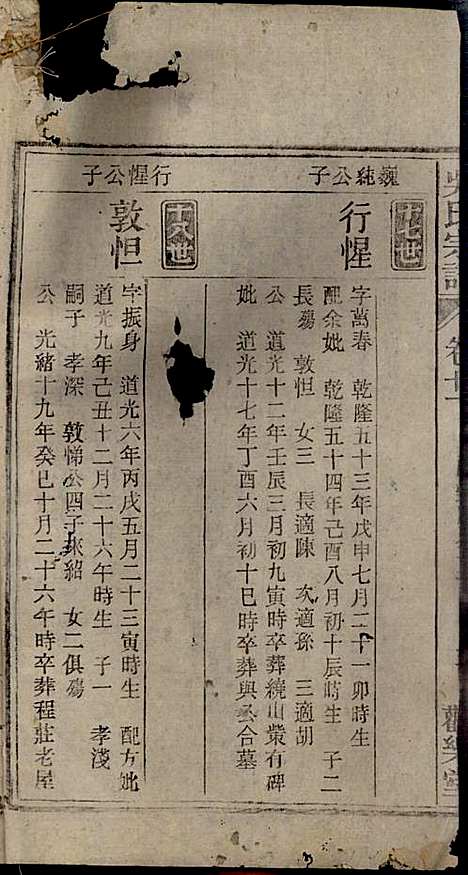 吳氏宗譜 卷十一
巍純公子
行惺
字萬春 乾隆五十三年戊申七月二十一卯時生
配余妣 乾隆五十四年己酉八月初十辰時生 子二
長殤 敦怛 女三 長適陳 次適孫 三適胡
公 道光十二年壬辰三月初九寅時卒葬繞山業有碑
妣 道光十七年丁酉六月初十巳時卒葬與公合墓
行惺公子
十八世
敦怛
字振身 道光六年丙戌五月二十三寅時生 配方妣
道光九年己丑十二月二十六午時生 子一 孝淺
嗣子 孝深 敦悌公四子來紹 女二俱殤
公 光緒十九年癸巳十月二十六午時卒葬程莊老屋